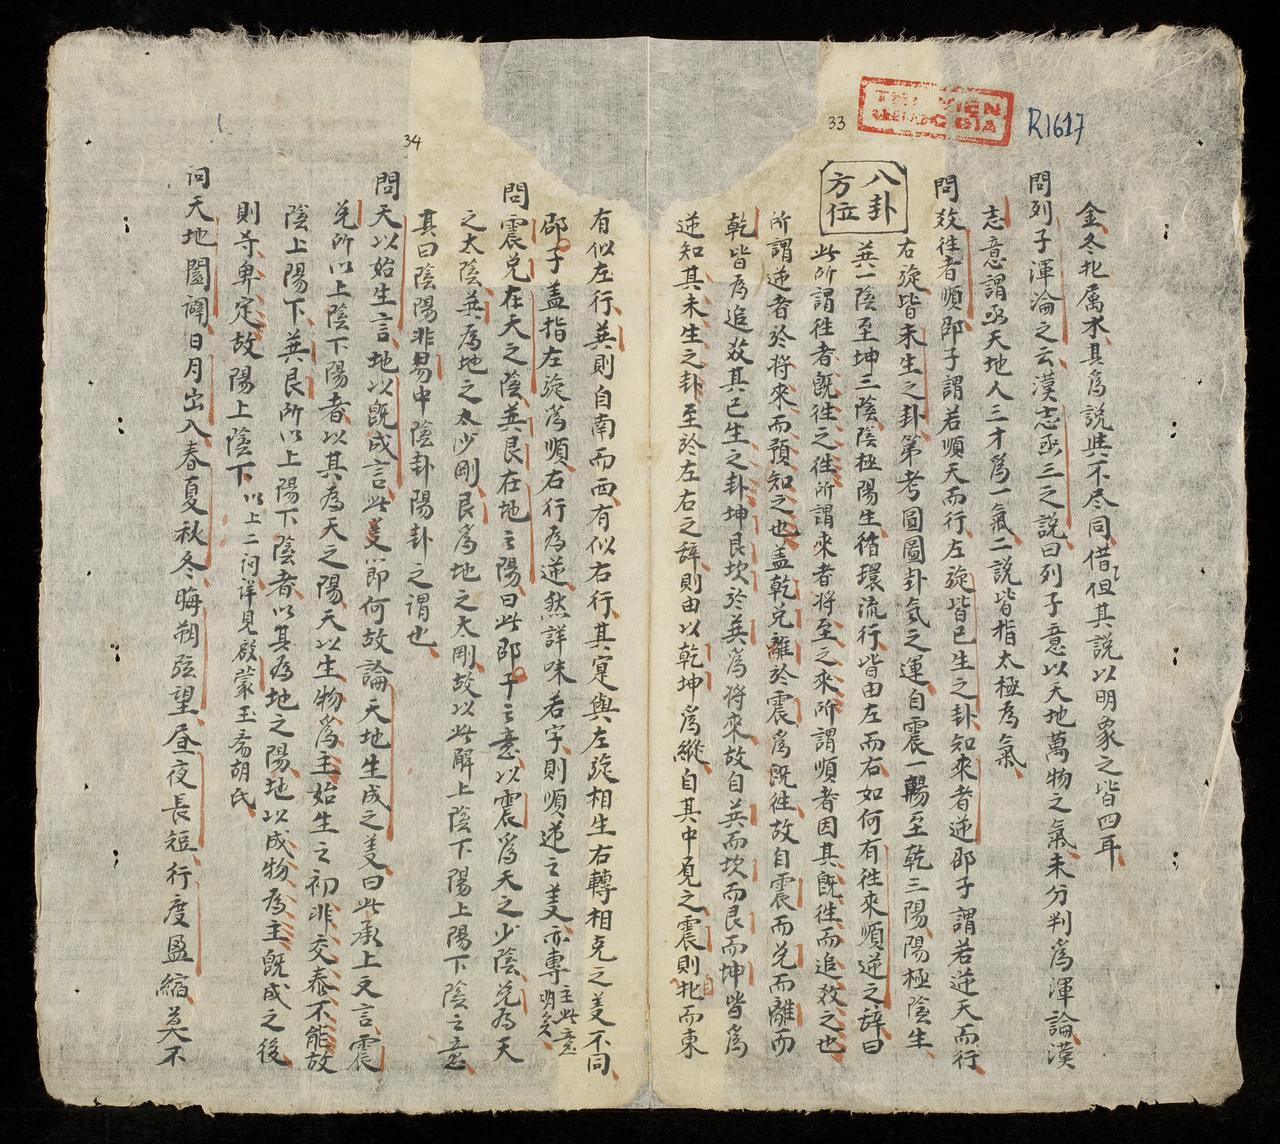 THƯ VIỆN
QUỐC GIA
R1617
33
金冬北属木其爲説與不尽同借但其説以明象之皆四耳
問列子渾淪之云漢志函三之説曰列子意以天地萬物之氣未分判爲渾論漢
志意謂函天地人三才爲一氣二説皆指太極爲氣
問数徃者順邵子謂若順天而行左旋皆已生之卦知來者逆邵子謂若逆天而行
右旋皆未生之卦第考圖圖卦気之運自震一陽至乾三陽陽極陰生
八卦
方位
巽一陰至坤三陰陰極陽生循環流行皆由左而右如何有徃來順逆之辞曰
此所謂徃者既徃之徃所謂來者将至之來所謂順者因其既徃而追数之也
所謂逆者於将來而預知之也盖乾兑離於震爲既徃故自震而兑而離而
乾皆爲追数其已生之卦坤艮坎於巽爲将來故自巽而坎而艮而坤皆爲
逆知其未生之卦至於左右之辞則由以乾坤爲縱自其中見之震則北而東
有似左行巽則自南而西有似右行其寔與左旋相生右轉相克之義不同
邵子盖指左旋爲順右行爲逆然詳味若字則順逆之義亦專主此意
明矣
34
問震兑在天之陰巽艮在地之陽曰此邵子之意以震爲天之少陰兑為天
之太陰巽爲地之太少剛艮爲地之太剛故以此解上陰下陽上陽下陰之意
其曰陰陽非易中陰卦陽卦之謂也
問天以始生言地以既成言此義節何故論天地生成之義曰此承上文言震
兑所以上陰下陽者以其為天之陽天以生物爲主始生之初非交泰不能故
陰上陽下巽艮所以上陽下陰者以其為地之陽地以成物為主既成之後
則尊卑定故陽上陰下以上二问詳見啟蒙玉斋胡氏
问天地闔闢日月出入春夏秋冬晦朔弦望昼夜長短行度盈縮莫不